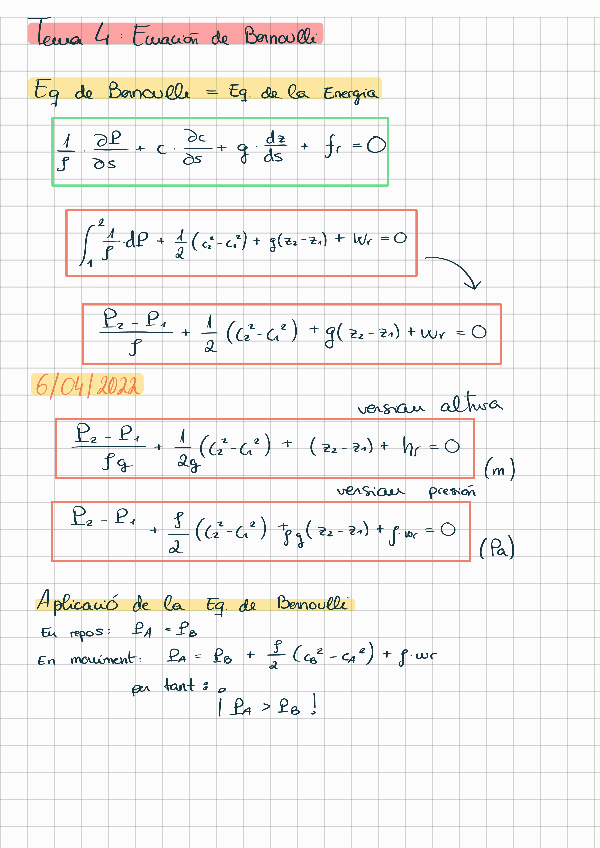 Tema 4: Ecuación de Bernoulli
Eq de Bernoulli = Eq. de la Energia
1/ρ · ∂P/∂s + c · ∂c/∂s + g · dz/ds + fr = 0
∫₁² 1/ρ · dP + 1/2 (c₂² - c₁²) + g(z₂ - z₁) + Wr = 0
(P₂ - P₁)/ρ + 1/2 (c₂² - c₁²) + g(z₂ - z₁) + wr = 0
6/04/2022
version altura
(P₂ - P₁)/ρg + 1/2g (c₂² - c₁²) + (z₂ - z₁) + hr = 0 (m)
version presión
P₂ - P₁ + ρ/2 (c₂² - c₁²) + ρg(z₂ - z₁) + ρ·wr = 0 (Pa)
Aplicació de la Eq. de Bernoulli
En repos: PA = PB
En moviment: PA = PB + ρ/2 (cB² - cA²) + ρ·wr
per tant:
¡PA > PB!